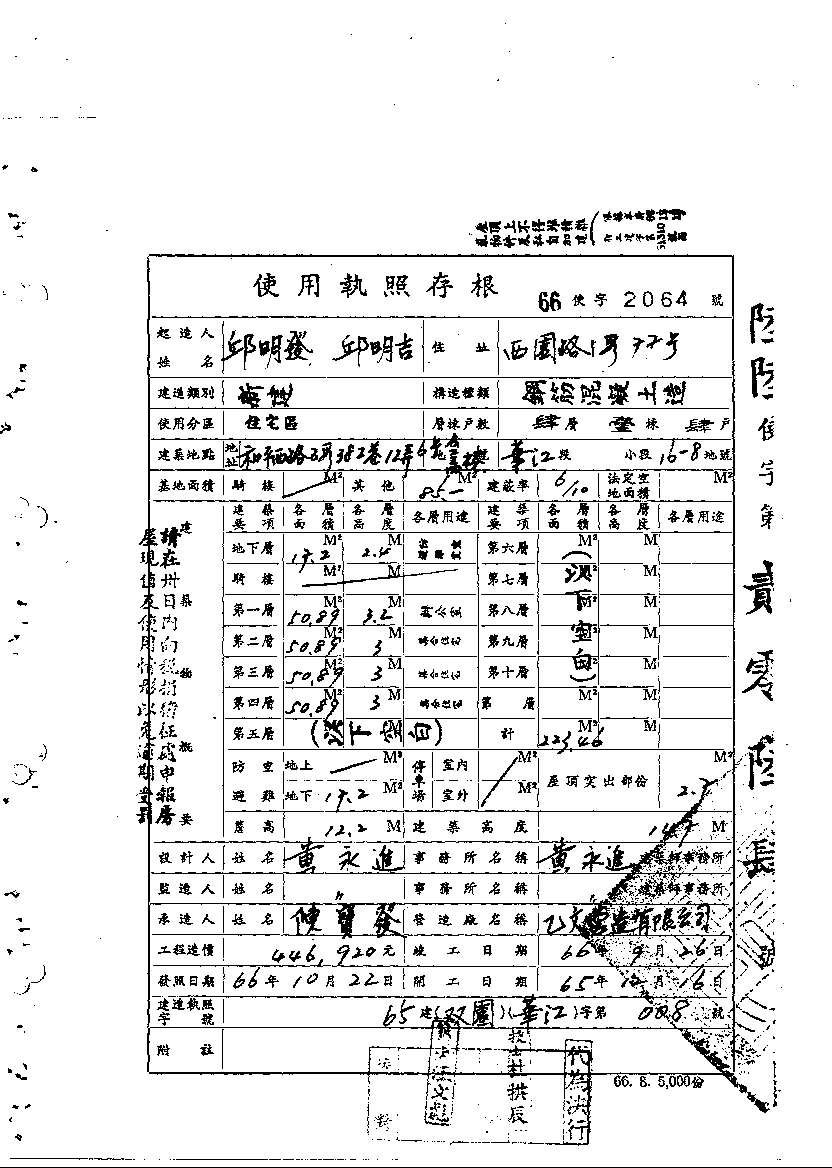 屋頂上不得堆積
使用執照存根
66 使字 2064 號
起造人姓名 邱明發 邱明吉 住址 西園路1号77号
建造類別 新建 構造種類 鋼筋混凝土造
使用分區 住宅區 層棟戶數 肆層 壹棟 肆戶
建築地點 地址 和平西路3段382巷12弄6号 華江段 小段 16-8 地號
基地面積 騎樓 M² 其他 85.- M² 建蔽率 6/10 法定空地面積 M²
建築要項 各層面積 各層高度 各層用途 建築要項 各層面積 各層高度 各層用途
地下層 17.2 M² 2.4 M 第六層 M² M
騎樓 M² M 第七層 M² M
第一層 50.89 M² 3.2 M 第八層 M² M
第二層 50.89 M² 3 M 第九層 M² M
第三層 50.89 M² 3 M 第十層 M² M
第四層 50.89 M² 3 M 第 層 M² M
第五層 (以下空白) M² M 計 223.46 M
(以下空白)
防空避難 地上 M² 停車場 室內 M² 屋頂突出部份 M²
地下 17.2 M² 室外 M² 2.7
簷高 12.2 M 建築高度 14.7 M
設計人 姓名 黃永進 事務所名稱 黃永進 建築師事務所
監造人 姓名 〃 事務所名稱 〃 建築師事務所
承造人 姓名 陳寶發 營造廠名稱 營造有限公司
工程造價 446,920元 竣工日期 66年9月26日
發照日期 66年10月22日 開工日期 65年12月16日
建造執照字號 65建(双園)(華江)字第 008 號
附註
建築物概要
請在卅日內向稅捐稽征處申報房
屋現值及使用情形以免逾期受罰
陸陸使字第貳零陸肆號
技士杜拱辰
代為決行
66. 8. 5,000份